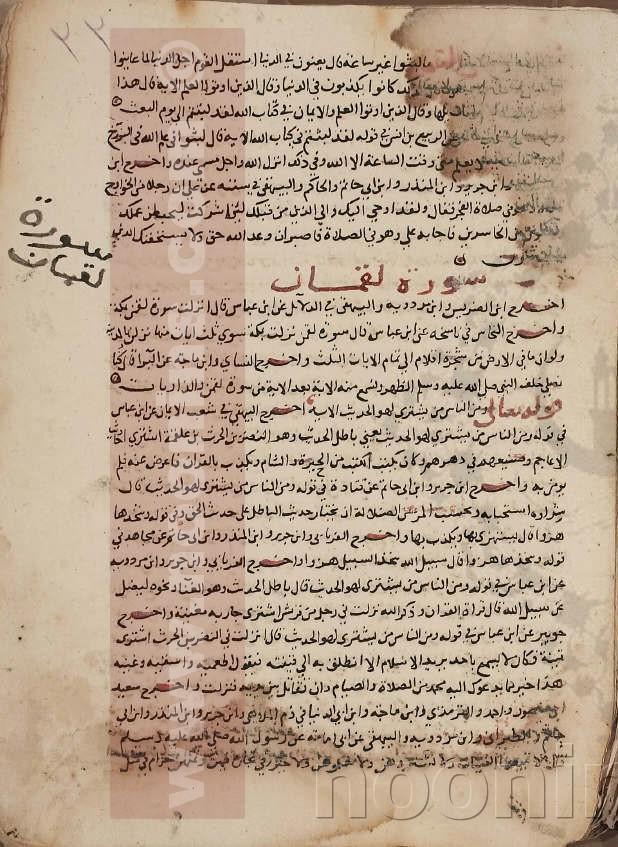 ما لبثوا غير ساعة قال يعنون في الدنيا استقل القوم اجل الدنيا لما عاينوا
كانوا يكذبون في الدنيا وقال الذين اوتوا العلم الاية قال هذا
وقال الذين اوتوا العلم والايمان في كتاب الله لقد لبثتم الى يوم البعث
الربيع بن انس في قوله لقد لبثتم في كتاب الله الاية قال لبثوا في علم الله في البرزخ
يعلم متى وقت الساعة الا الله وفي ذلك انزل الله واجل مسمى عنده واخرج ابن
وابن جرير وابن المنذر وابن ابي حاتم والحاكم والبيهقي في سننه عن علي ان رجلا من الخوارج
صلاة الفجر فقال ولقد اوحي اليك والى الذين من قبلك لئن اشركت ليحبطن عملك
من الخاسرين فاجابه علي وهو في الصلاة فاصبر ان وعد الله حق ولا يستخفنك الذين
سورة لقمان
سورة
لقمان
اخرج ابن الضريس وابن مردويه والبيهقي في الدلائل عن ابن عباس قال انزلت سورة لقمن بمكة
واخرج النحاس في ناسخه عن ابن عباس قال سورة لقمن نزلت بمكة سوى ثلث ايات منها نزلن بالمدينة
ولو ان ما في الارض من شجرة اقلام الى تمام الايات الثلث واخرج النساي وابن ماجة عن البراء قال كنا
نصلي خلف النبي صلى الله عليه وسلم الظهر ونسمع منه الاية بعد الاية من سورة لقمن والذاريات
قوله تعالى ومن الناس من يشتري لهو الحديث الاية اخرج البيهقي في شعب الايمان عن ابن عباس
في قوله ومن الناس من يشتري لهو الحديث يعني باطل الحديث وهو النضر بن الحرث بن علقمة اشترى احاديث
الاعاجم وصنيعهم في دهرهم وكان يكتب الكتب من الحيرة والشام ويكذب بالقران فاعرض عنه فلم
يومن به واخرج ابن جرير وابن ابي حاتم عن قتادة في قوله ومن الناس من يشتري لهو الحديث قال
شراوه استحبابه وبحسب المرء من الضلالة ان يختار حديث الباطل على حديث الحق وفي قوله ويتخذها
هزوا قال يستهزي بها ويكذب بها واخرج الفريابي وابن جرير وابن المنذر وابن ابي حاتم عن مجاهد في
قوله ويتخذها هزوا قال سبيل الله يتخذ السبيل هزوا واخرج الفريابي وابن جرير وابن مردويه
عن ابن عباس في قوله ومن الناس من يشتري لهو الحديث قال باطل الحديث وهو الغناء ونحوه ليضل
عن سبيل الله قال قراة القران وذكر الله نزلت في رجل من قريش اشترى جارية مغنية واخرج
جويبر عن ابن عباس في قوله ومن الناس من يشتري لهو الحديث قال انزلت في النضر بن الحرث اشترى
قينة فكان لا يسمع باحد يريد الاسلام الا انطلق به الى قينته فيقول اطعميه واسقيه وغنيه
هذا خير مما يدعوك اليه محمد من الصلاة والصيام وان تقاتل بين يديه فنزلت واخرج سعيد
ابن منصور واحمد والترمذي وابن ماجه وابن ابي الدنيا في ذم الملاهي وابن جرير وابن المنذر وابن ابي
حاتم والطبراني وابن مردويه والبيهقي عن ابي امامة عن رسول الله صلى الله عليه وسلم
القينات ولا ولا خير في تجارة فيهن وثمنهن حرام في مثل